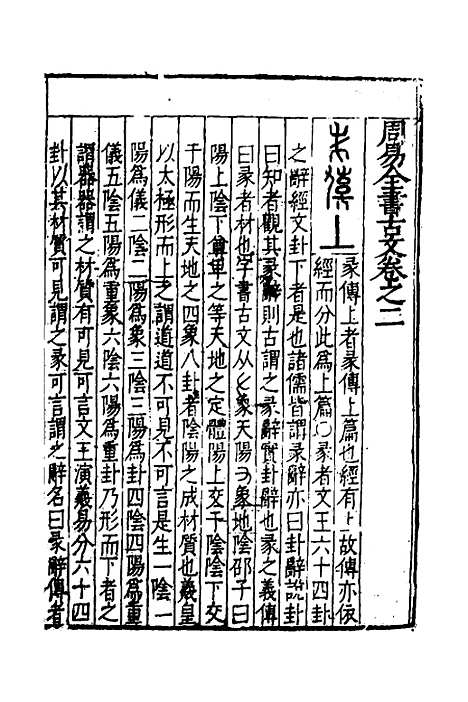 周易全書古文卷之二
彖傳上
彖傳上者彖傳上篇也經有上故傳亦依
經而分此為上篇○彖者文王六十四卦
之辭經文卦下者是也諸儒皆謂彖辭亦曰卦辭說卦
曰知者觀其彖辭則古謂之彖辭實卦辭也彖之義傳
曰彖者材也字書古文从象天陽象地陰邵子曰
陽上陰下尊卑之等天地之定體陽上交于陰陰下交
于陽而生天地之四象八卦者陰陽之成材質也羲皇
以太極形而上之謂道道不可見不可言是生一陰一
陽為儀二陰二陽為象三陰三陽為卦四陰四陽為重
儀五陰五陽為重象六陰六陽為重卦乃形而下者之
謂器器謂之材質有可見可言文王演羲易分六十四
卦以其材質可見謂之彖可言謂之辭名曰彖辭傳者